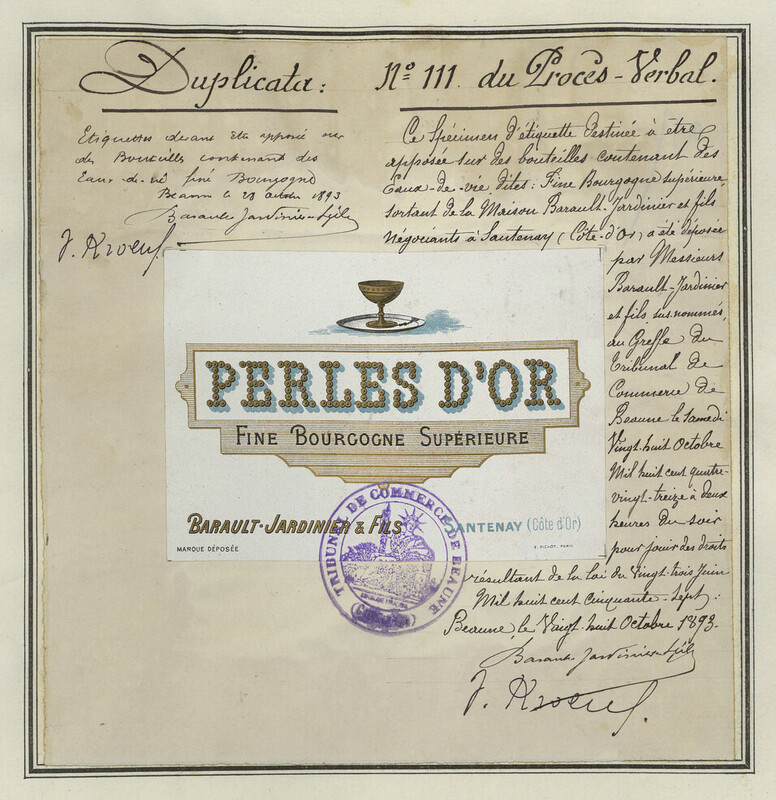 Duplicata:
N° 111. du Procès-Verbal.
Etiquettes devant être apposée sur
des Bouteilles contenant des
Eaux-de-vie fine Bourgogne
Beaune le 28 octobre 1893
Barault-Jardinier & fils
Ce Spécimen d'étiquette destinée à être
apposée sur des bouteilles contenant des
Eaux-de-vie dites: Fine Bourgogne supérieure,
sortant de la Maison Barault-Jardinier et fils
négociants à Santenay (Côte-d'Or) a été déposée
par Messieurs
Barault-Jardinier
et fils sus-nommés,
au Greffe du
Tribunal de
Commerce de
Beaune le Samedi
Vingt-huit Octobre
Mil huit cent quatre-
vingt-treize à deux
heures du soir
pour jouir des droits
résultant de la loi du Vingt-trois Juin
Mil huit cent cinquante-sept:
Beaune, le Vingt-huit Octobre 1893.
Barault-Jardinier & fils
PERLES D'OR
FINE BOURGOGNE SUPÉRIEURE
BARAULT-JARDINIER & FILS
SANTENAY (Côte d'Or)
MARQUE DÉPOSÉE
E. PICHOT, PARIS
TRIBUNAL DE COMMERCE DE BEAUNE